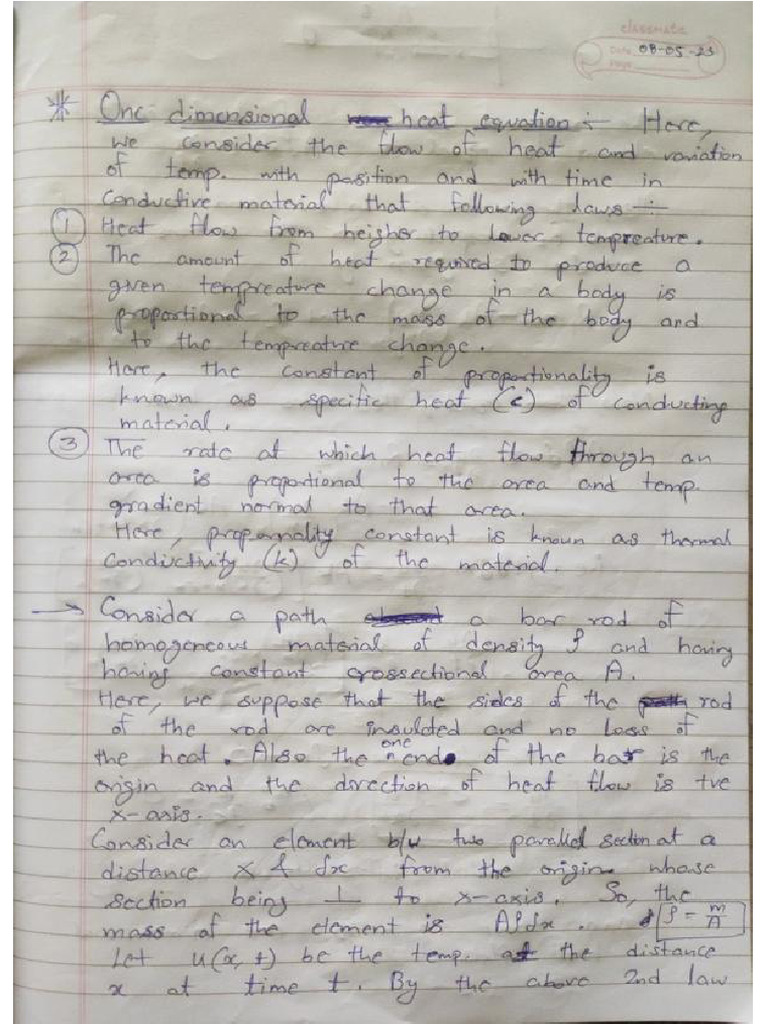 classmate
Date 08-05-23
Page
* One dimensional heat equation :- Here,
we consider the flow of heat and variation
of temp. with position and with time in
conductive material that following laws :-
① Heat flow from heigher to lower tempreature.
② The amount of heat required to produce a
given tempreature change in a body is
proportional to the mass of the body and
to the tempreature change.
Here, the constant of proportionality is
known as specific heat (c) of conducting
material.
③ The rate at which heat flow through an
area is propotional to the area and temp.
gradient normal to that area.
Here, propornality constant is known as thermal
conductivity (k) of the material.
→ Consider a path a bar rod of
homogeneous material of density ρ and having
having constant crossectional area A.
Here, we suppose that the sides of the rod
of the rod are insulated and no loss of
the heat. Also the one end of the bar is the
origin and the direction of heat flow is +ve
x-axis.
Consider an element b/w two parallel section at a
distance x & δx from the origin whose
section being ⊥ to x-axis. So, the
mass of the element is Aρδx. ρ = m/A
Let u(x, t) be the temp. at the distance
x at time t. By the above 2nd law